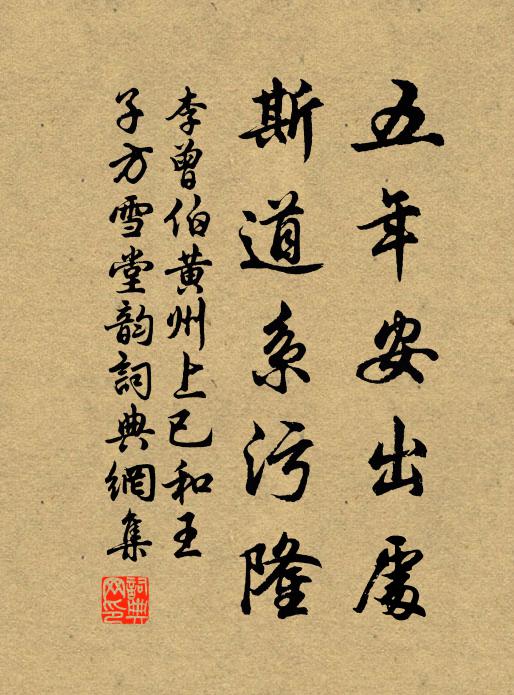 五年安出處
斯道系污隆
李曾伯黃州上巳和王
子方雪堂韵詞典網集
詞典网印